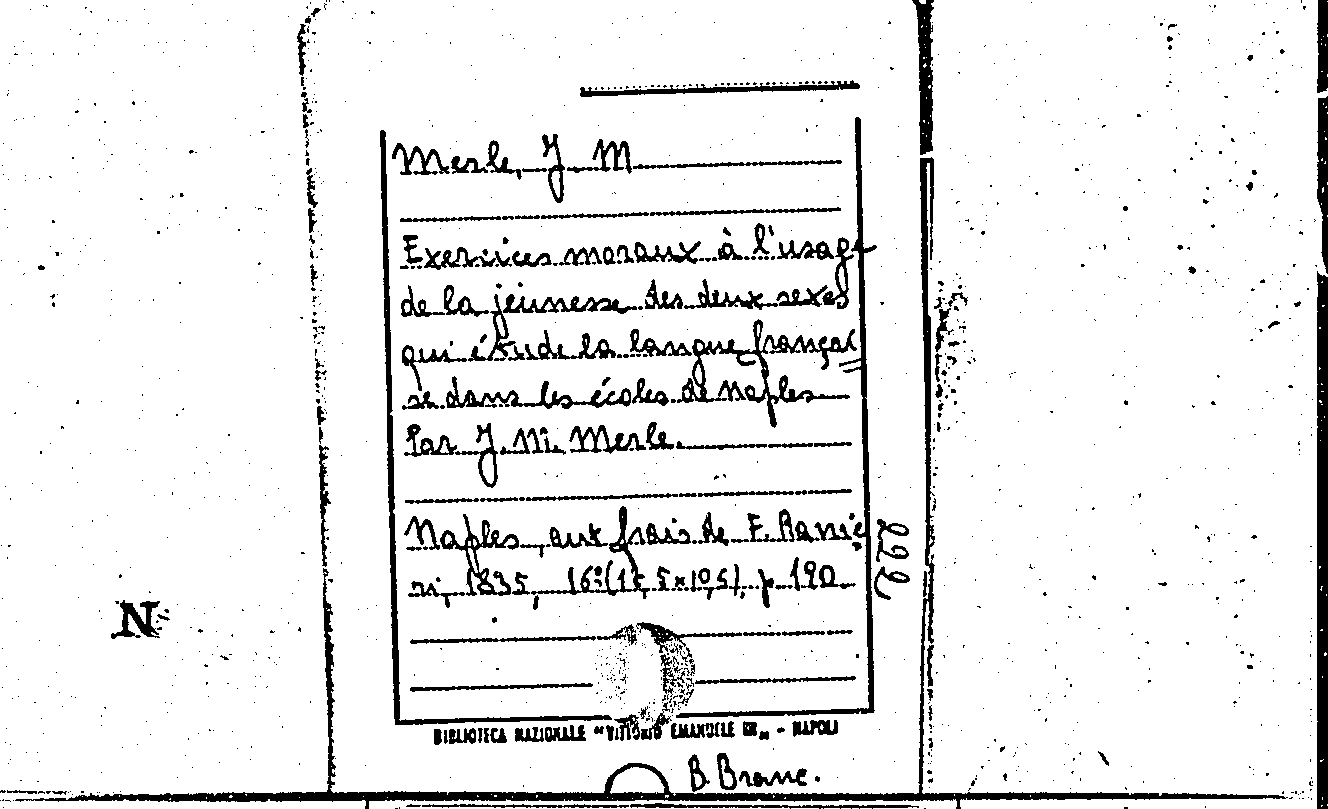 Merle, J. M.
Exercices moraux à l'usage
de la jeunesse des deux sexes
qui étude la langue françai
se dans les écoles de Naples
Par J. M. Merle.
Naples, aux frais de F. Ranie
ri, 1835, 16º (15,5x10,5), p. 190
222
N
BIBLIOTECA NAZIONALE "VITTORIO EMANUELE III„ - NAPOLI
B. Branc.